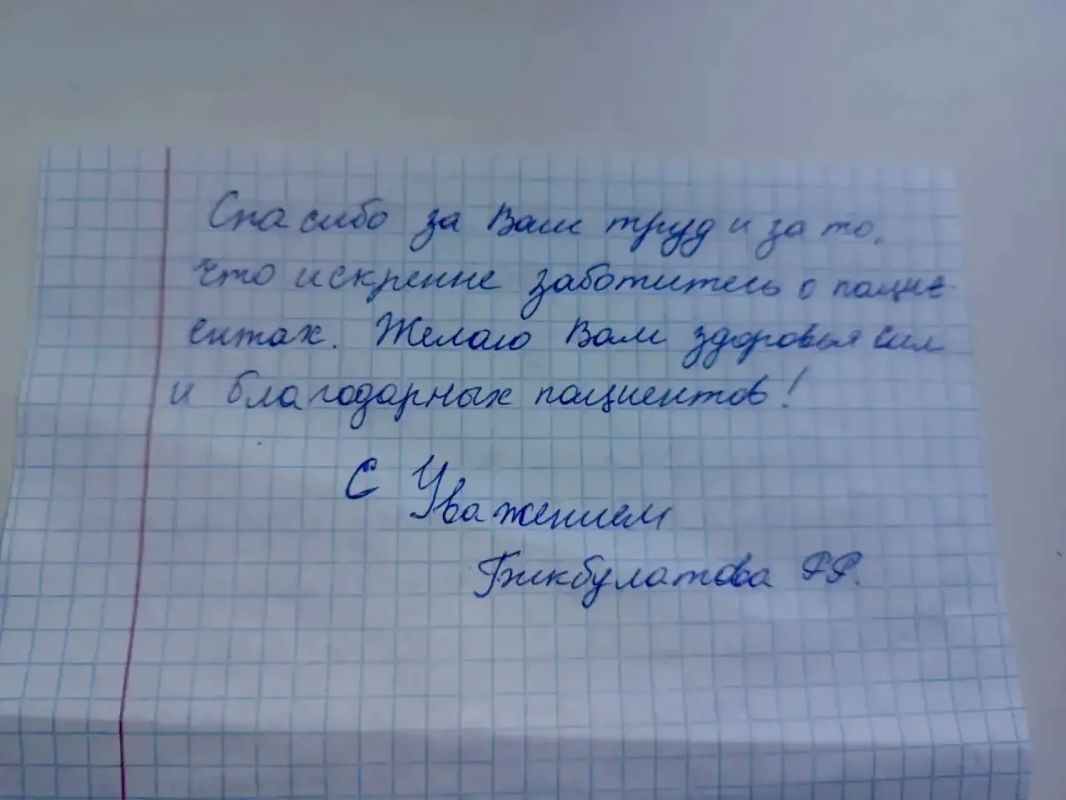 Спасибо за Ваш труд и за то,
что искренне заботитесь о пацие
ентах. Желаю Вам здоровья сил
и благодарных пациентов!
С Уважением
Бикбулатова Р.Р.